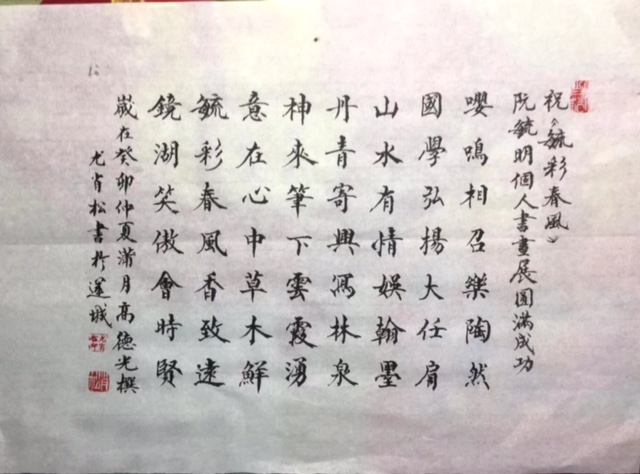 祝《毓彩春风》
阮毓明個人書畫展圓滿成功
嚶鳴相召樂陶然
國學弘揚大任肩
山水有情娛翰墨
丹青寄興寫林泉
神來筆下雲霞湧
意在心中草木鮮
毓彩春風香致遠
鏡湖笑傲會時賢
歲在癸卯仲夏滿月高德光撰
尤肖松書於邐城